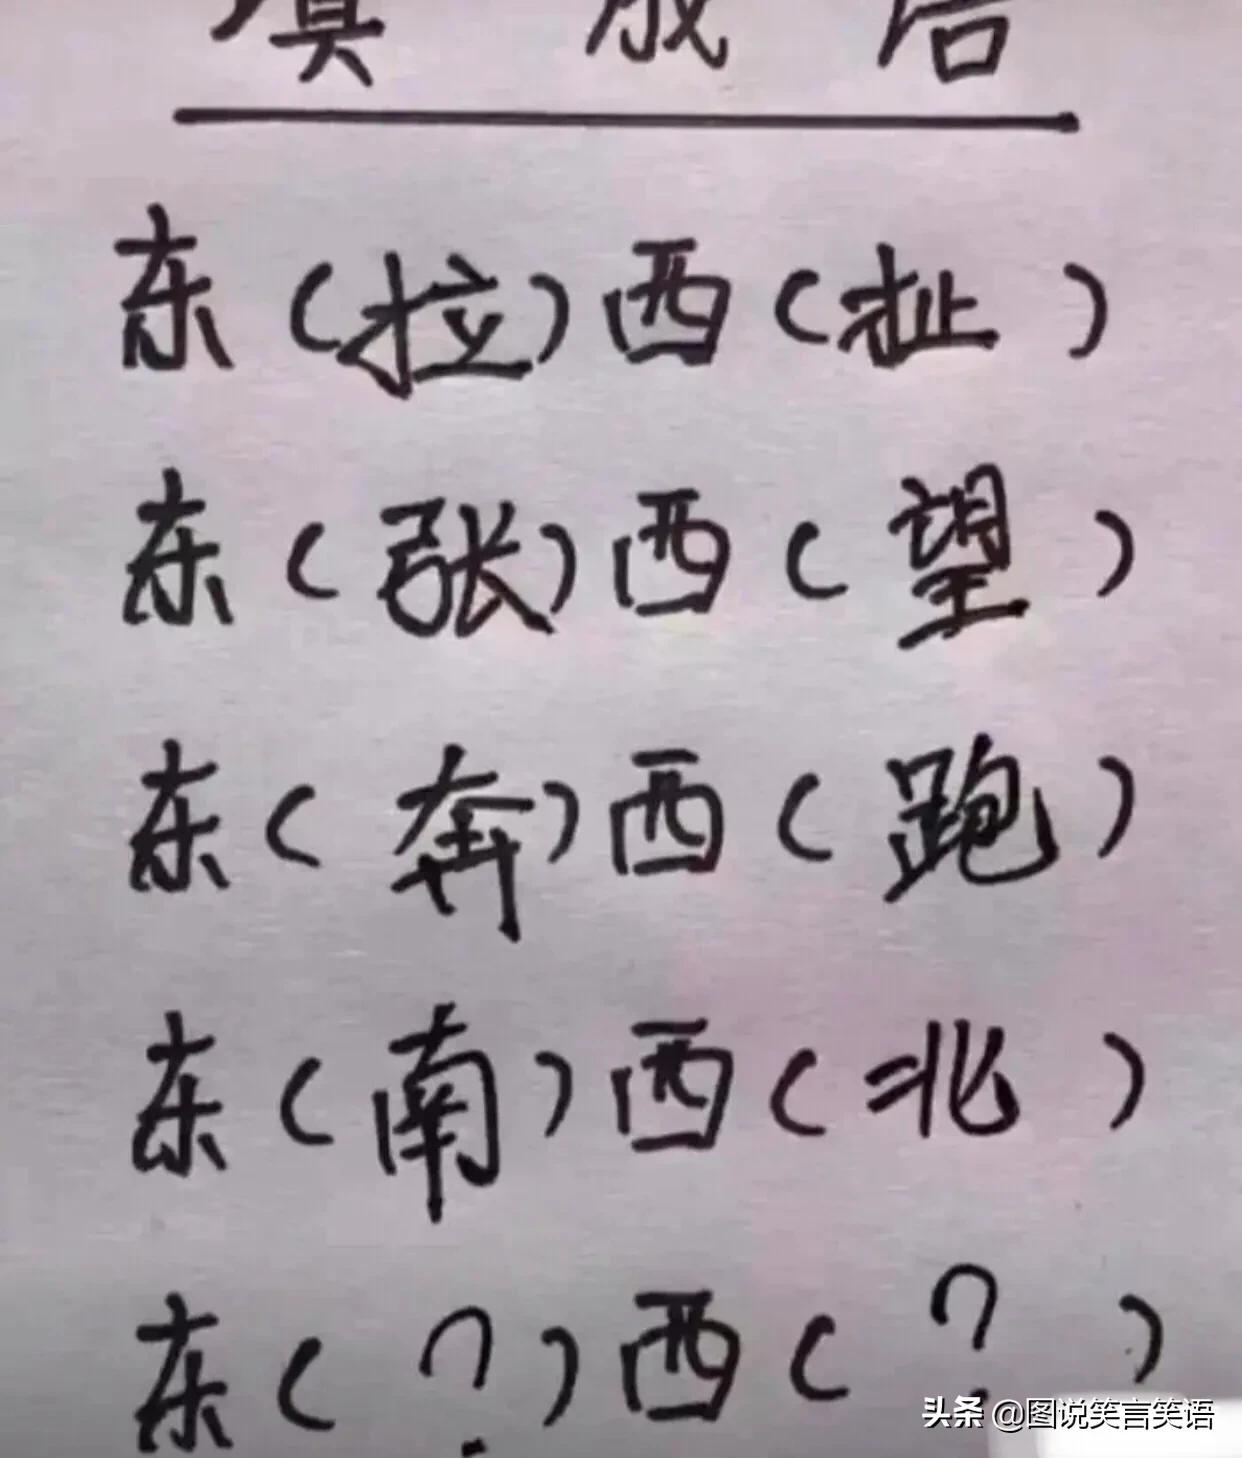 填成语
东(拉)西(扯)
东(张)西(望)
东(奔)西(跑)
东(南)西(北)
东(?)西(?)
头条 @图说笑言笑语